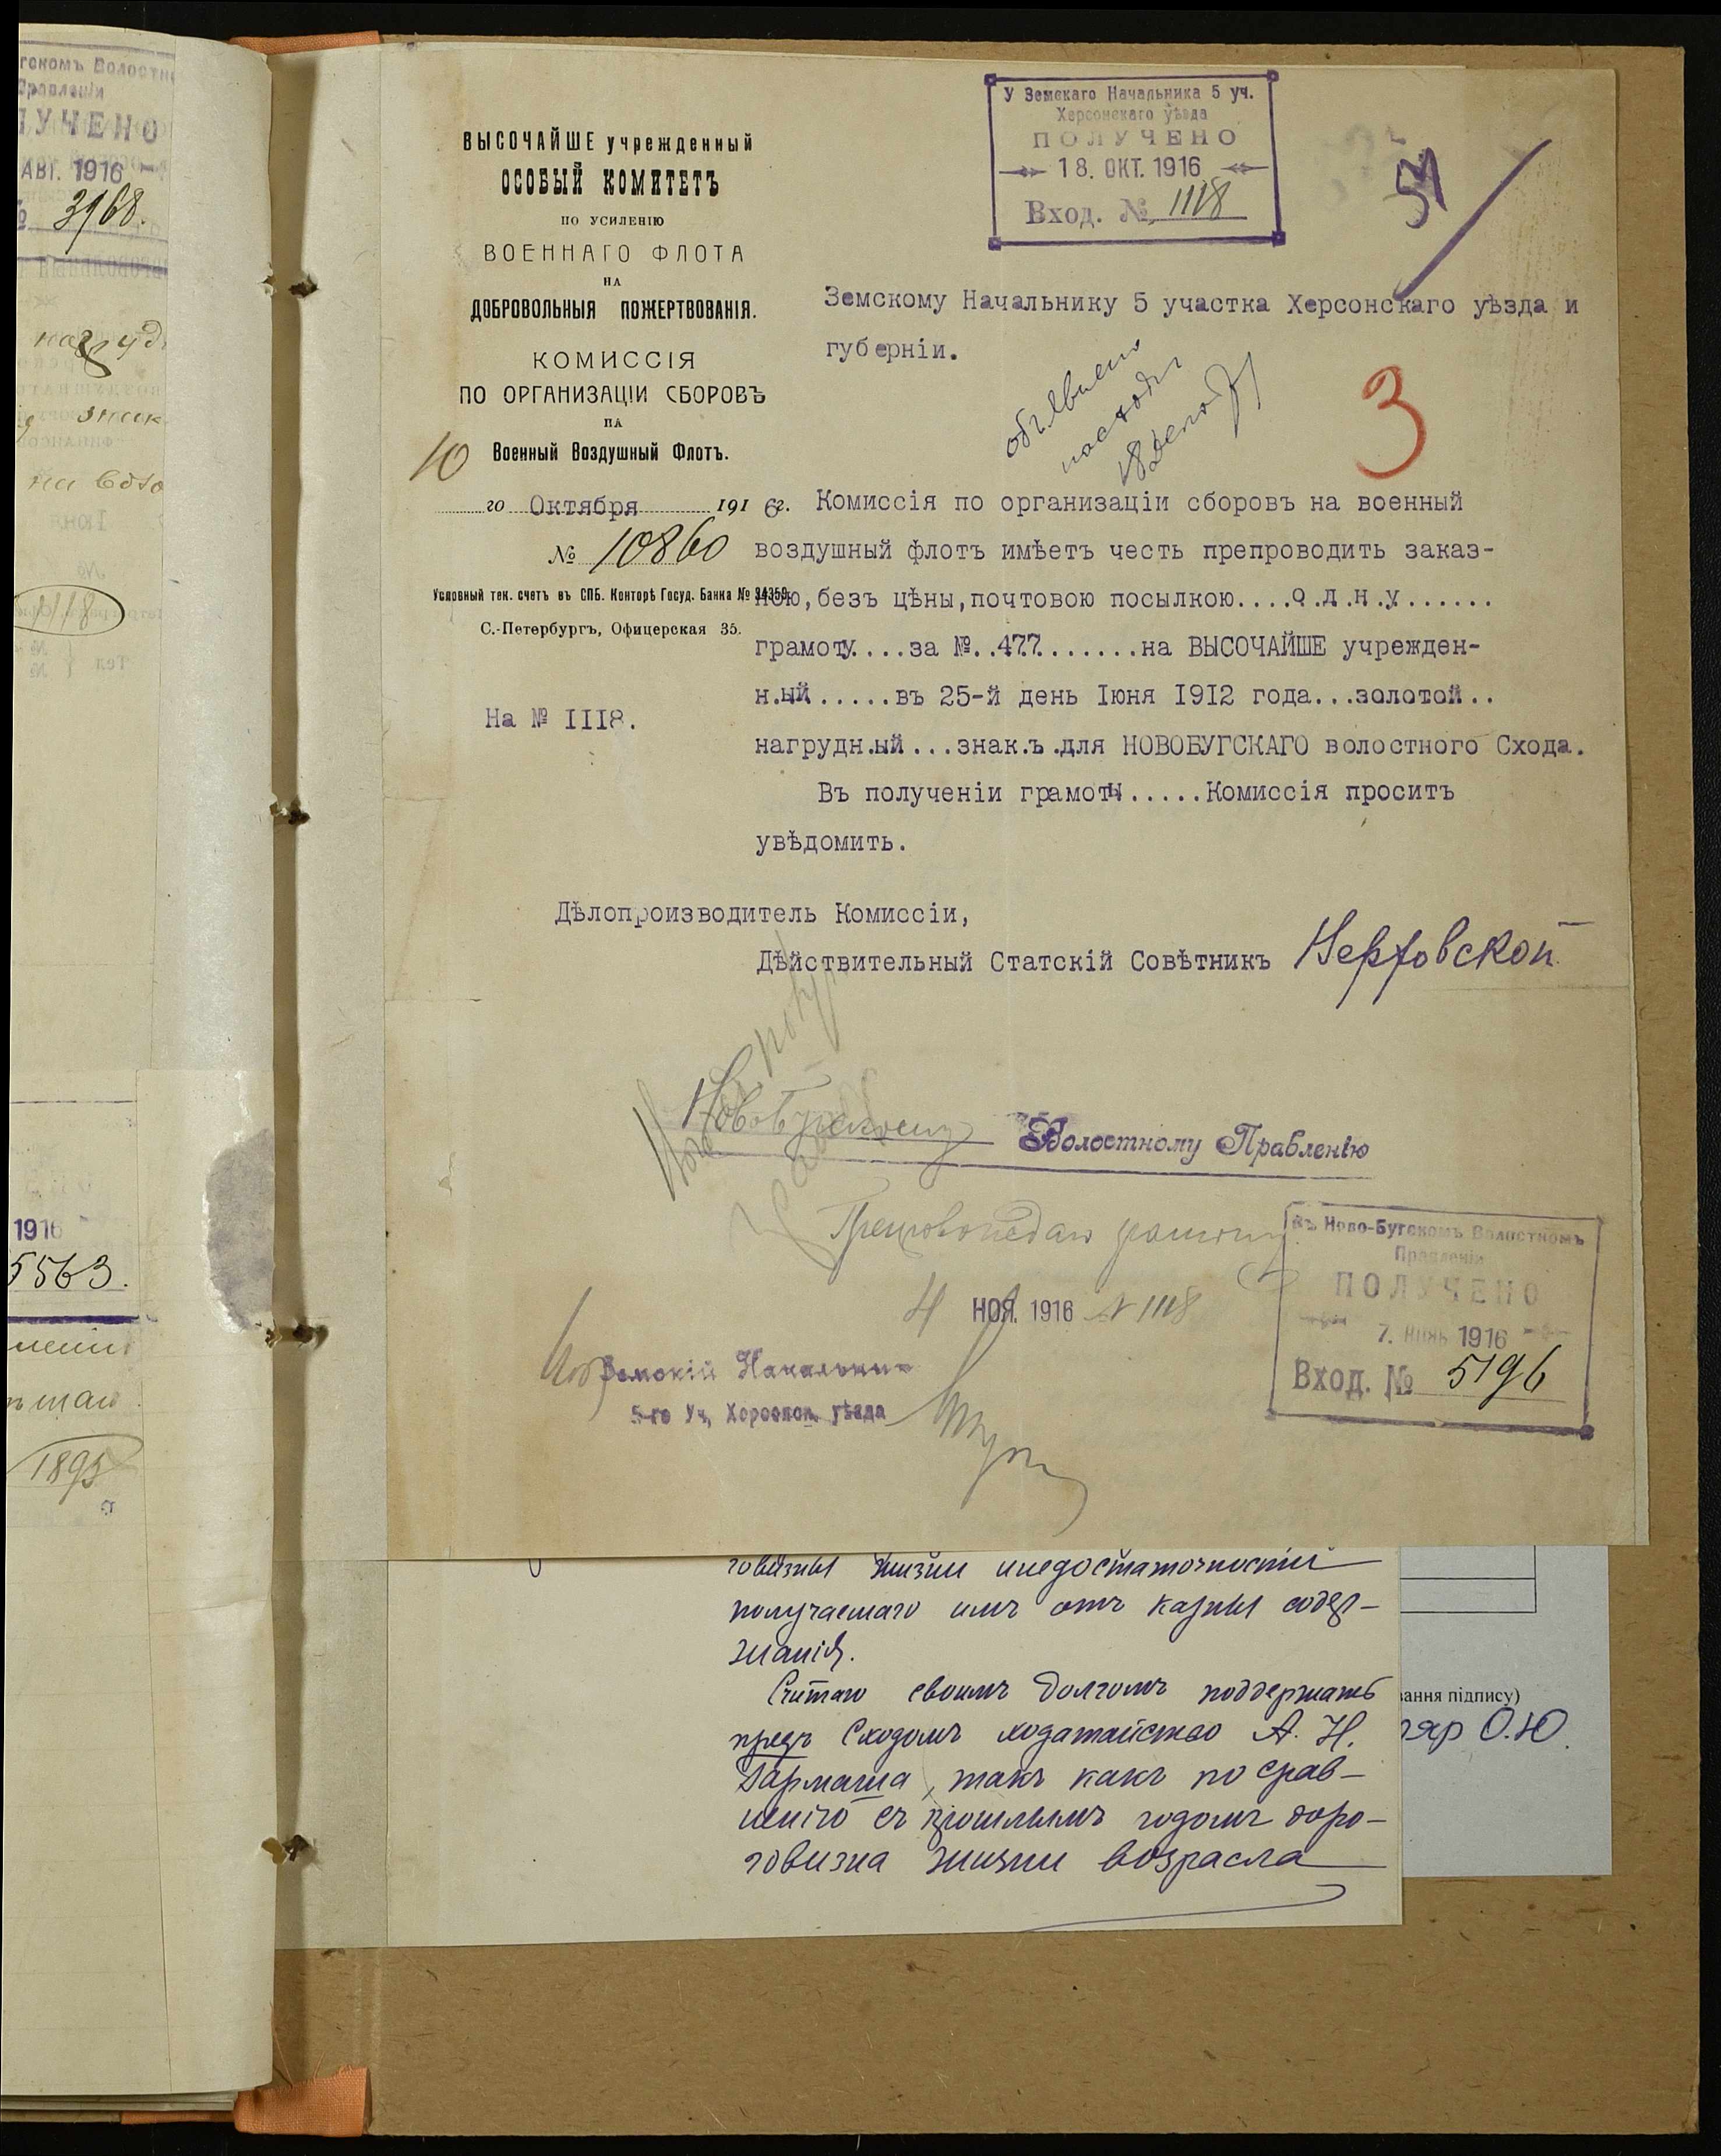 гскомъ Волостн
Правленіи
ЛУЧЕНО
АВГ. 1916
3968.
нагруд
знак
1916
5563.
1895
У Земскаго Начальника 5 уч.
Херсонскаго уѣзда
ПОЛУЧЕНО
18. ОКТ. 1916
Вход. № 1118
ВЫСОЧАЙШЕ учрежденный
ОСОБЫЙ КОМИТЕТЪ
ПО УСИЛЕНІЮ
ВОЕННАГО ФЛОТА
НА
ДОБРОВОЛЬНЫЯ ПОЖЕРТВОВАНІЯ.
КОМИССІЯ
ПО ОРГАНИЗАЦІИ СБОРОВЪ
НА
Военный Воздушный Флотъ.
10
го Октября 1916г.
№ 10860
Условный тек. счетъ въ СПБ. Конторѣ Госуд. Банка №
С.-Петербургъ, Офицерская 35.
На № III8.
Земскому Начальнику 5 участка Херсонскаго уѣзда и
губерніи.
3
Комиссія по организаціи сборовъ на военный
воздушный флотъ имѣетъ честь препроводить заказ-
ною,безъ цѣны,почтовою посылкою....о.д.н.у......
грамоту....за №..477.......на ВЫСОЧАЙШЕ учрежден-
н.ый......въ 25-й день Іюня I9I2 года...золотой..
нагрудн.ый...знак.ъ.для НОВОБУГСКАГО волостного Схода.
Въ полученіи грамоты.....Комиссія проситъ
увѣдомить.
Дѣлопроизводитель Комиссіи,
Дѣйствительный Статскій Совѣтникъ
Новобугскому Волостному Правленію
Препровождаю грамоту
4 НОЯ. 1916 № 1118
Земскій Начальник
5-го Уч. Херсонск. уѣзда
Въ Ново-Бугскомъ Волостномъ
Правленіи
ПОЛУЧЕНО
7. Нояь 1916
Вход. № 5196
говизны жизни и недостаточности
получаемаго имъ отъ казны содер-
жанія.
Считаю своимъ долгомъ поддержать
предъ Сходомъ ходатайство А. Н.
Гармаша, такъ какъ по срав-
ненію съ прошлымъ годомъ доро-
говизна жизни возрасла
вання підпису)
яр О.Ю.